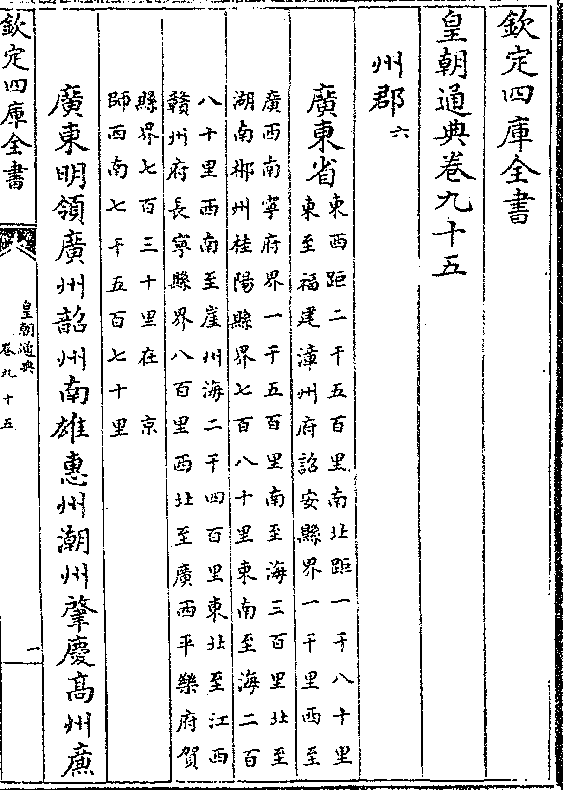 欽定四庫全書
皇朝通典卷九十五
州郡六
廣東省
東西距二千五百里南北距一千八十里
東至福建漳州府詔安縣界一千里西至
廣西南寧府界一千五百里南至海三百里北至
湖南郴州桂陽縣界七百八十里東南至海二百
八十里西南至崖州海二千四百里東北至江西
贛州府長寧縣界八百里西北至廣西平樂府賀
縣界七百三十里在 京
師西南七千五百七十里
廣東明領廣州韶州南雄惠州潮州肇慶高州廉
欽定四庫全書
皇朝通典
卷九十五
一